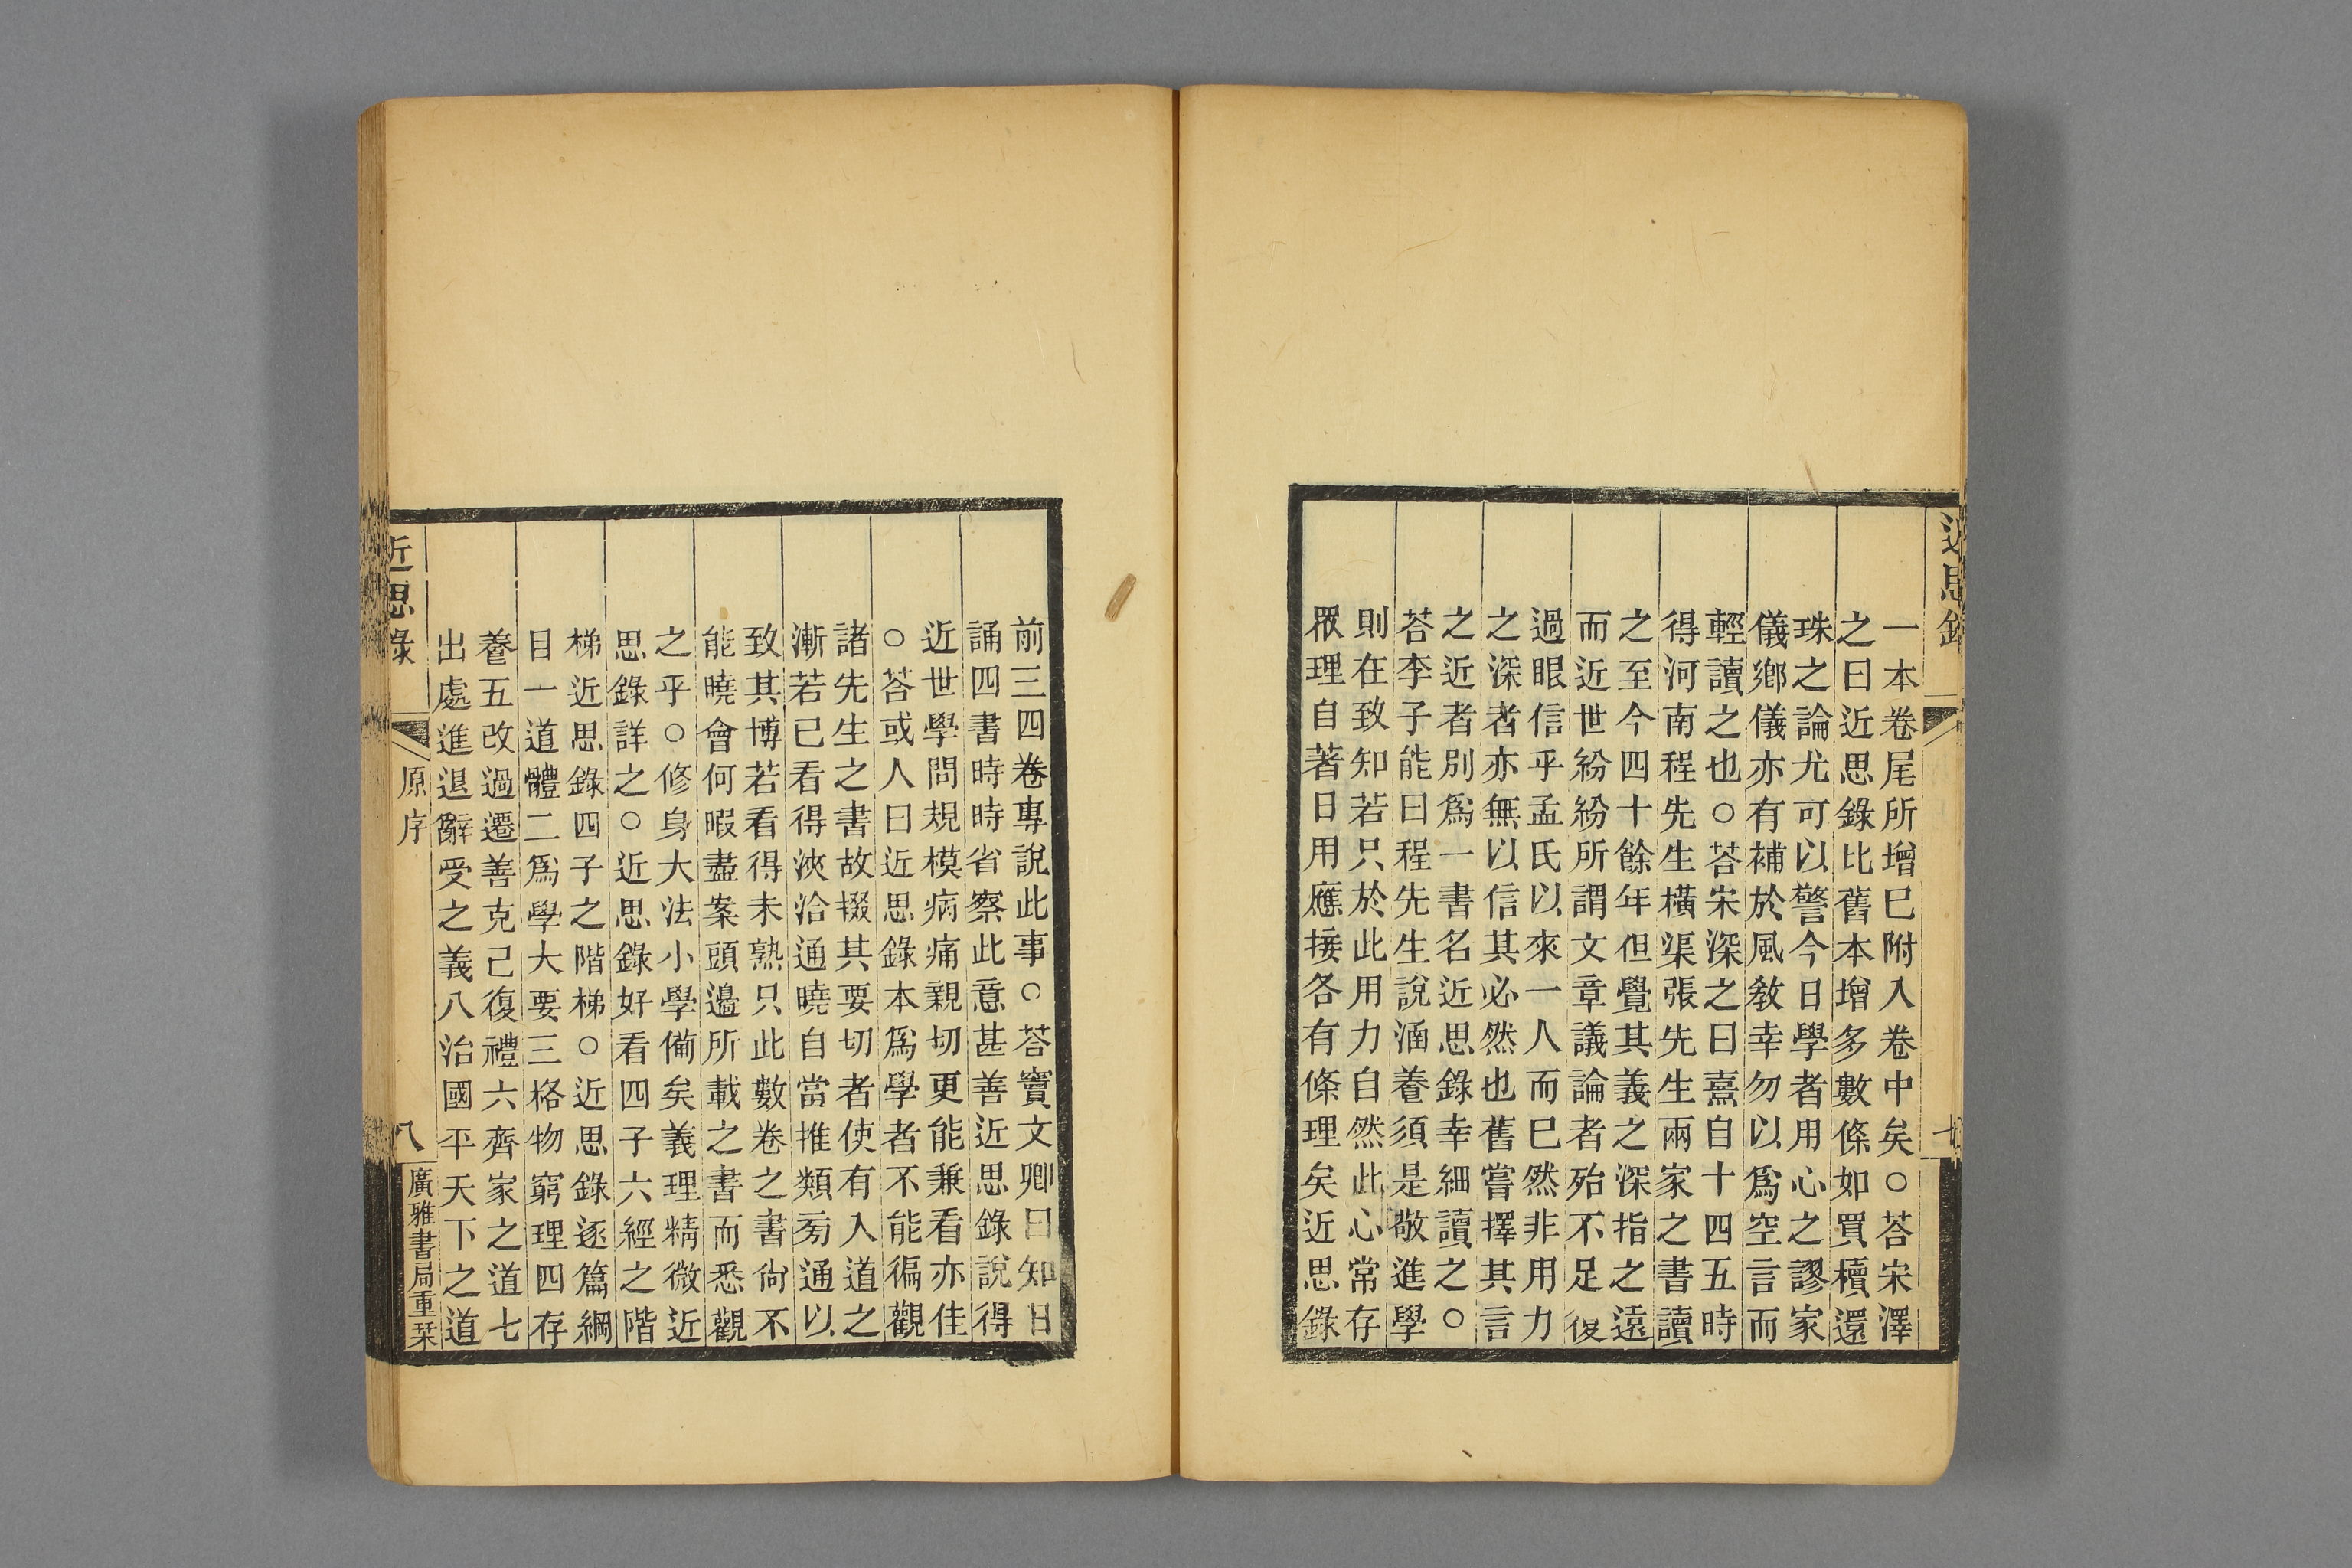 近思錄
一本卷尾所增已附入卷中矣○荅宋澤
之曰近思錄比舊本增多數條如買櫝還
珠之論尤可以警今日學者用心之謬家
儀鄉儀亦有補於風敎幸勿以爲空言而
輕讀之也○荅宋深之曰熹自十四五時
得河南程先生橫渠張先生兩家之書讀
之至今四十餘年但覺其義之深指之遠
而近世紛紛所謂文章議論者殆不足復
過眼信乎孟氏以來一人而已然非用力
之深者亦無以信其必然也舊嘗擇其言
之近者別爲一書名近思錄幸細讀之○
荅李子能曰程先生說涵養須是敬進學
則在致知若只於此用力自然此心常存
眾理自著日用應接各有條理矣近思錄
前三四卷專說此事○荅竇文卿曰知日
誦四書時時省察此意甚善近思錄說得
近世學問規模病痛親切更能兼看亦佳
○荅或人曰近思錄本爲學者不能徧觀
諸先生之書故掇其要切者使有入道之
漸若已看得浹洽通曉自當推類旁通以
致其博若看得未熟只此數卷之書尙不
能曉會何暇盡案頭邊所載之書而悉觀
之乎○修身大法小學備矣義理精微近
思錄詳之○近思錄好看四子六經之階
梯近思錄四子之階梯○近思錄逐篇綱
目一道體二爲學大要三格物窮理四存
養五改過遷善克己復禮六齊家之道七
出處進退辭受之義八治國平天下之道
近思錄
原序
八
廣雅書局重栞